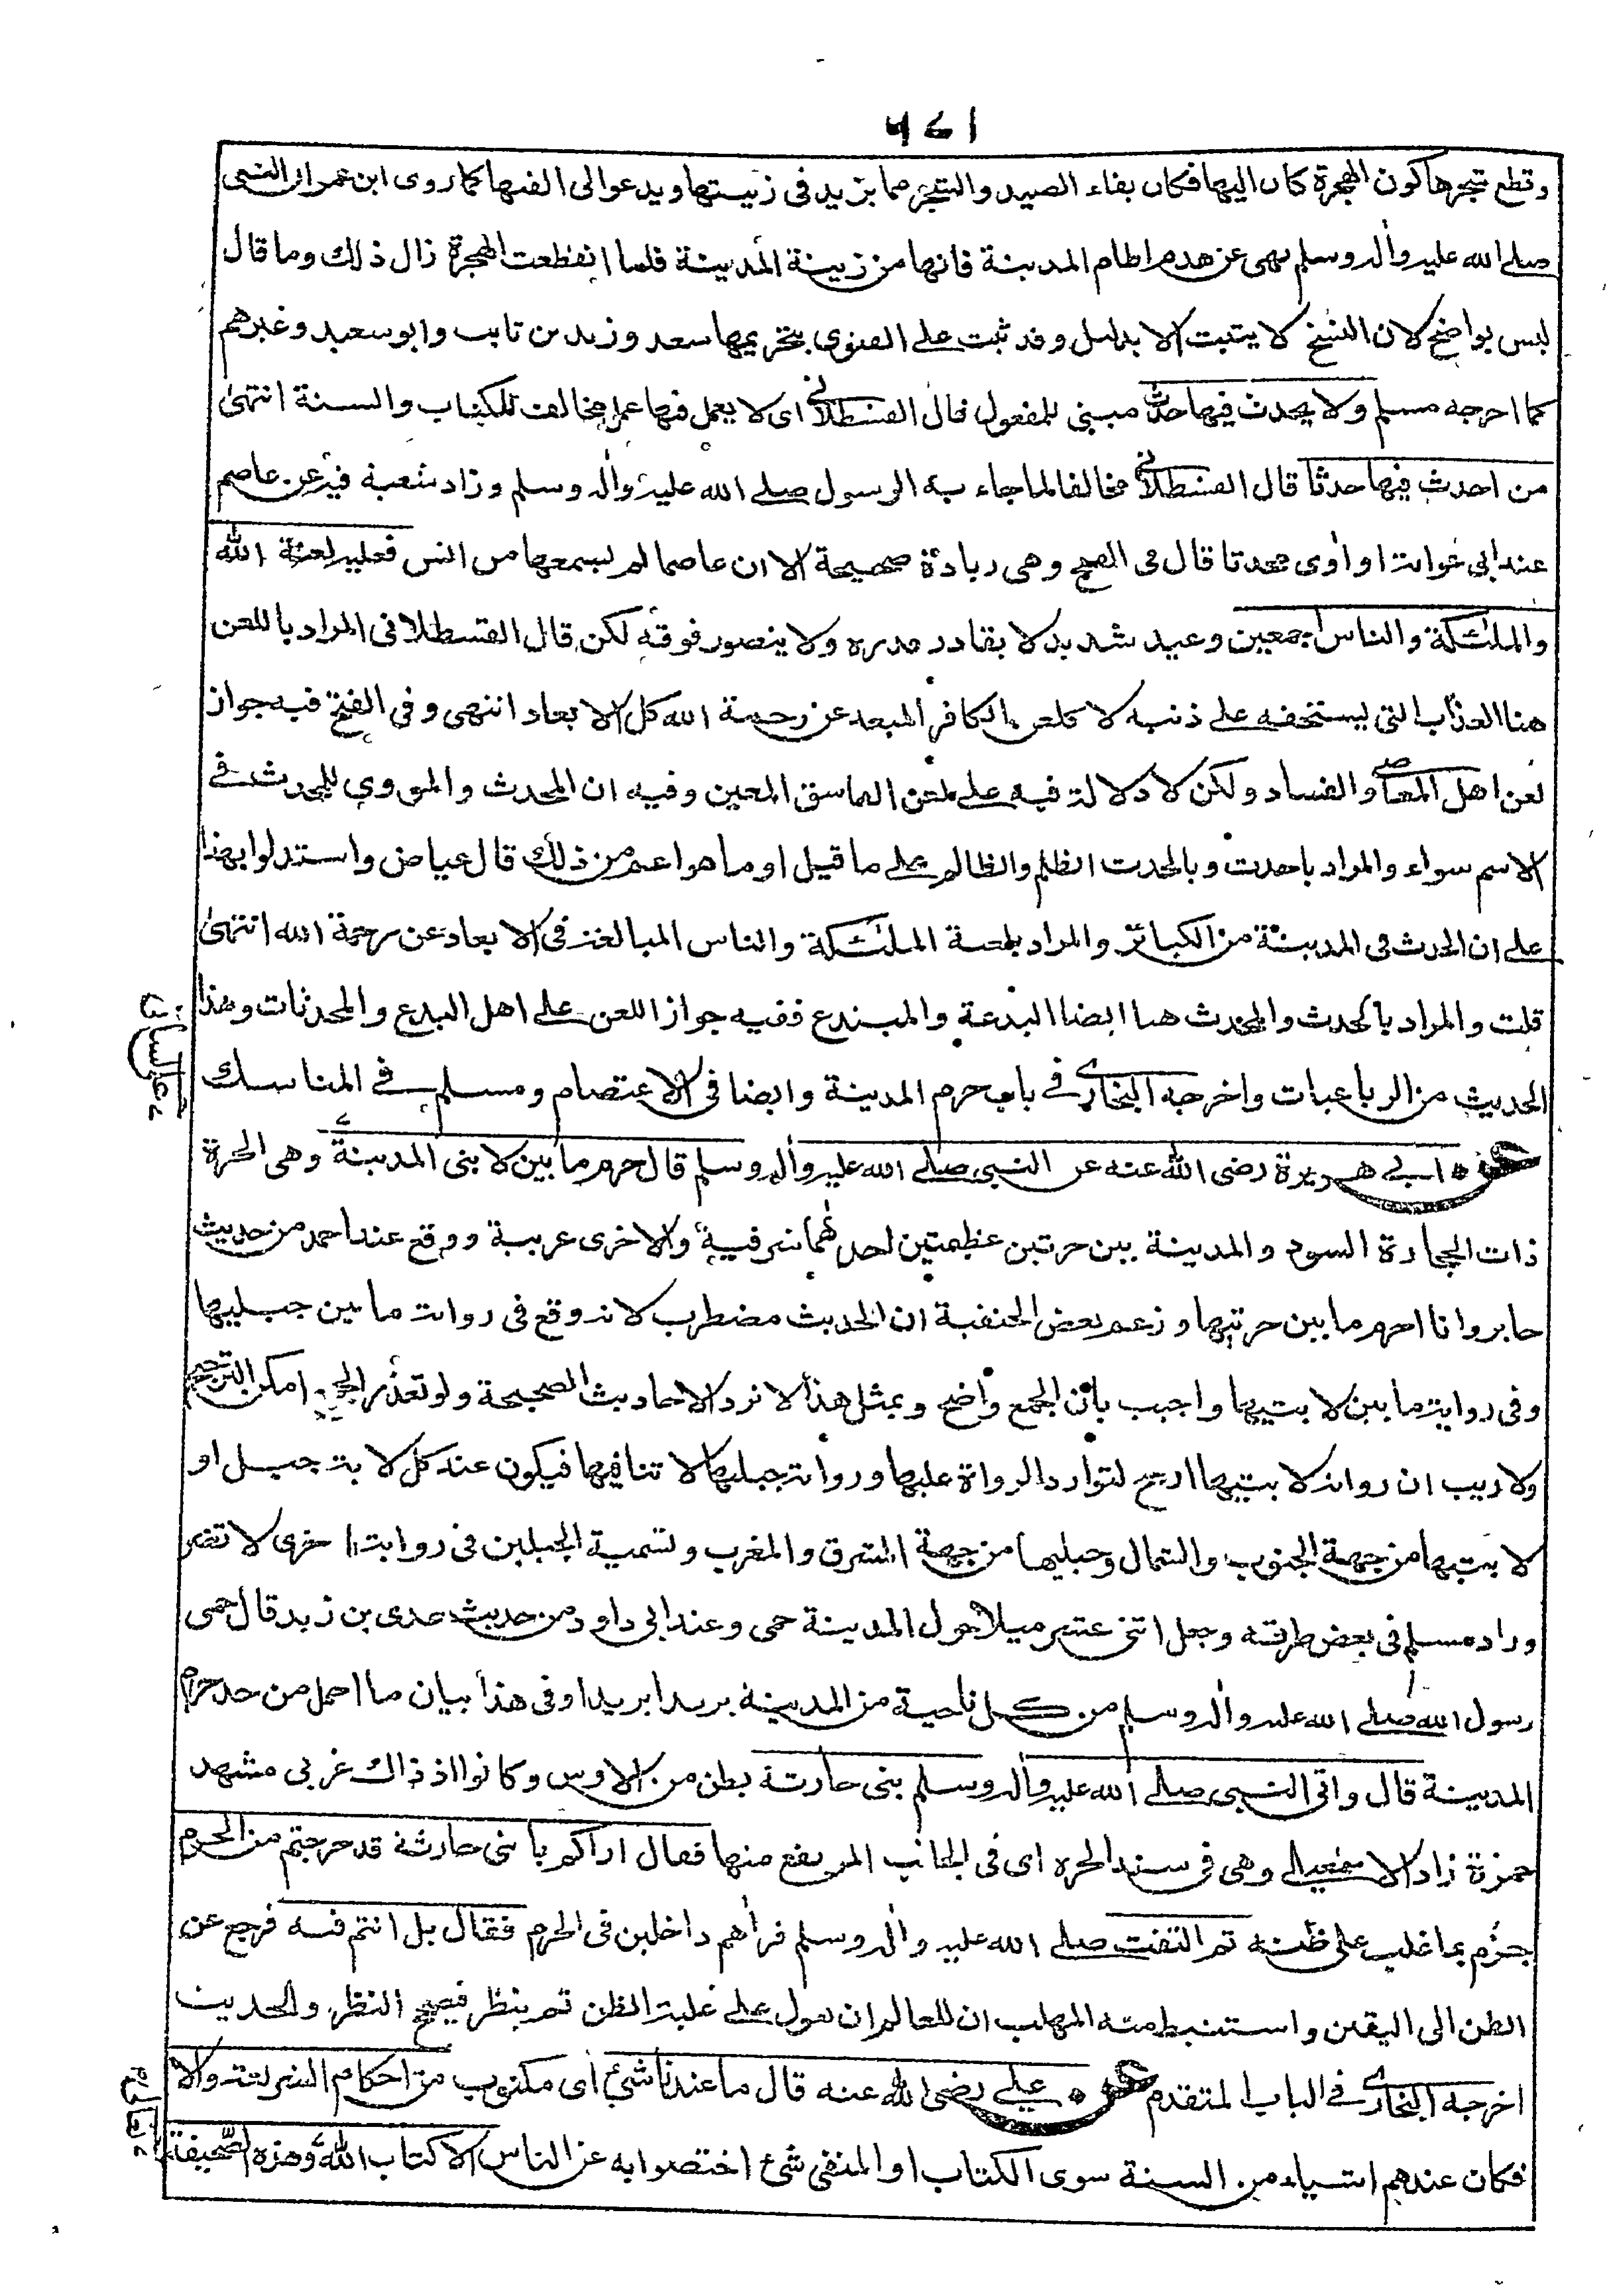 ٦٧١
وقطع شجرها كون الهجرة كان اليها فكان بقاء الصيد والشجر مما يزيد فى زينتها ويدعو الى الفتها كما روى ابن عمر ان النبى
صلى الله عليه واله وسلم نهى عن هدم اطام المدينة فانها من زينة المدينة فلما انقطعت الهجرة زال ذلك وما قال
ليس بواضح لان النسخ لا يثبت الا بدليل وقد ثبت على الفتوى بتحريمها سعد وزيد بن ثابت وابو سعيد وغيرهم
كما اخرجه مسلم ولا يحدث فيها حدث مبنى للمفعول قال القسطلانى اى لا يعمل فيها عمل مخالف للكتاب والسنة انتهى
من احدث فيها حدثا قال القسطلانى مخالفا لما جاء به الرسول صلى الله عليه واله وسلم وزاد شعبة فيه عن عاصم
عند ابى عوانة او اوى محدثا قال فى الفتح وهى زيادة صحيحة الا ان عاصما لم يسمعها من انس فعليه لعنة الله
والملئكة والناس اجمعين وعيد شديد لا يقادر قدره ولا يتصور فوقه لكن قال القسطلانى المراد باللعن
هنا العذاب التى يستحقه على ذنبه لا كلعن الكافر المبعد عن رحمة الله كل الابعاد انتهى وفى الفتح فيه جواز
لعن اهل المعاصى والفساد ولكن لا دلالة فيه على لعن الفاسق المعين وفيه ان المحدث والمووي للمحدث فى
الاسم سواء والمراد باحدث وبالمحدث الظلم والظالم على ما قيل او ما هو اعم من ذلك قال عياض واستدلوا بهذا
على ان الحدث فى المدينة من الكبائر والمراد بلعنة الملئكة والناس المبالغة فى الابعاد عن رحمة الله انتهى
قلت والمراد بالحدث والمحدث هنا ايضا البدعة والمبتدع ففيه جواز اللعن على اهل البدع والمحدثات وهذا
الحديث من الرباعيات واخرجه البخارى فى باب حرم المدينة وايضا فى الاعتصام ومسلم فى المناسك
عن ابى هريرة رضى الله عنه عن النبى صلى الله عليه واله وسلم قال حرم ما بين لابتى المدينة وهى الحرة
ذات الحجارة السود والمدينة بين حرتين عظيمتين احدهما شرقية والاخرى غربية ووقع عند احمد من حديث
جابر وانا احرم ما بين حرتيها وزعم بعض الحنفية ان الحديث مضطرب لانه وقع فى رواية ما بين جبليها
وفى رواية ما بين لابتيها واجيب بان الجمع واضح وبمثل هذا لا ترد الاحاديث الصحيحة ولو تعذر الجمع امكن الترجيح
ولا ريب ان رواية لابتيها ارجح لتوارد الرواة عليها ورواية جبليها لا تنافيها فيكون عند كل لابة جبل او
لابتيها من جهة الجنوب والشمال وجبليها من جهة المشرق والمغرب وتسمية الجبلين فى رواية اخرى لا تضر
وزاد مسلم فى بعض طرقه وجعل اثنى عشر ميلا حول المدينة حمى وعند ابى داود من حديث عدى بن زيد قال حمى
رسول الله صلى الله عليه واله وسلم من كل ناحية من المدينة بريدا بريدا وفى هذا بيان ما اجمل من حد حرم
المدينة قال واتى النبى صلى الله عليه واله وسلم بنى حارثة بطن من الاوس وكانوا اذ ذاك غربى مشهد
حمزة زاد الاسمعيلى وهى فى سند الحرة اى فى الجانب المرتفع منها فقال اراكم يا بنى حارثة قد خرجتم من الحرم
جزم بما غلب على ظنه ثم التفت صلى الله عليه واله وسلم فراهم داخلين فى الحرم فقال بل انتم فيه فرجع عن
الظن الى اليقين واستنبط منه المهلب ان للعالم ان يعول على غلبة الظن ثم ينظر فيصحح النظر والحديث
اخرجه البخارى فى الباب المتقدم عن على رضى الله عنه قال ما عندنا شئ اى مكتوب من احكام الشريعة والا
فكان عندهم اشياء من السنة سوى الكتاب او المنفى شئ اختصوا به عن الناس الا كتاب الله وهذه الصحيفة